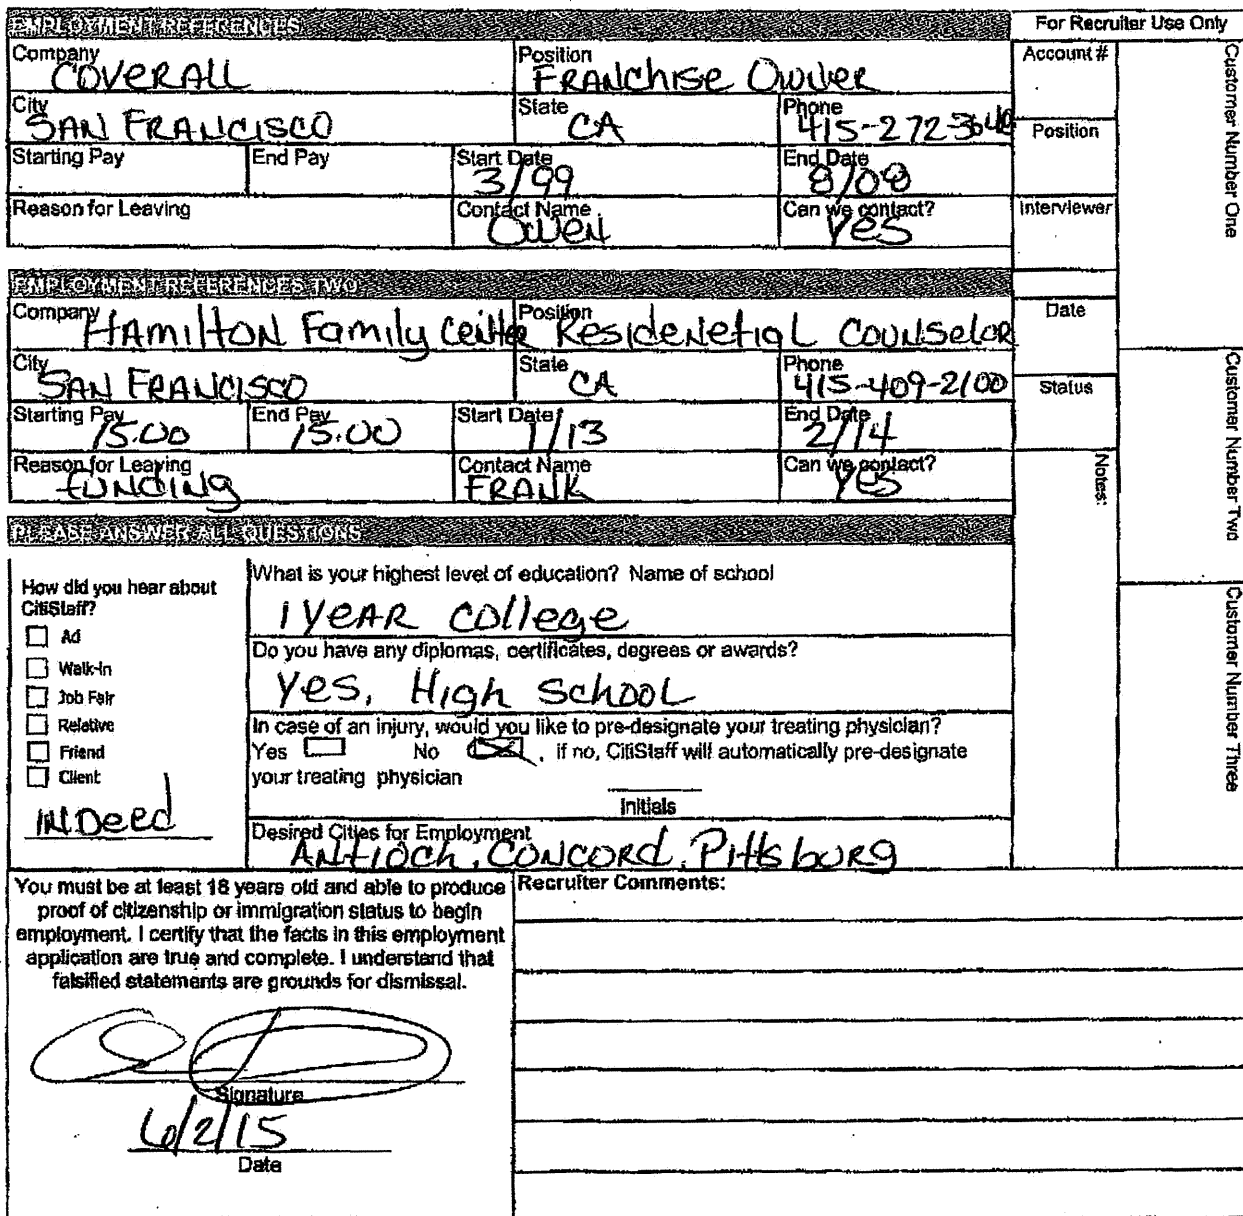 EMPLOYMENT REFERENCES
For Recruiter Use Only
Company COVERALL
Position FRANCHISE OWNER
Account #
Customer Number One
City SAN FRANCISCO
State CA
Phone 415-272-3640
Position
Starting Pay
End Pay
Start Date 3/99
End Date 8/08
Reason for Leaving
Contact Name OWEN
Can we contact? YES
Interviewer
EMPLOYMENT REFERENCES TWO
Company HAMILTON Family Center
Position Residenetial Counselor
Date
City SAN FRANCISCO
State CA
Phone 415-409-2100
Status
Customer Number Two
Starting Pay 15.00
End Pay 15.00
Start Date 1/13
End Date 2/14
Reason for Leaving funding
Contact Name FRANK
Can we contact? yes
Notes:
PLEASE ANSWER ALL QUESTIONS
How did you hear about
CitiStaff?
Ad
Walk-In
Job Fair
Relative
Friend
Client
INDeed
What is your highest level of education? Name of school
1 YEAR College
Do you have any diplomas, certificates, degrees or awards?
Yes, High School
In case of an injury, would you like to pre-designate your treating physician?
Yes No , if no, CitiStaff will automatically pre-designate
your treating physician
Initials
Desired Cities for Employment
ANTIOCH, CONCORD, PittsBURG
Customer Number Three
You must be at least 18 years old and able to produce
proof of citizenship or immigration status to begin
employment. I certify that the facts in this employment
application are true and complete. I understand that
falsified statements are grounds for dismissal.
Signature
6/2/15
Date
Recruiter Comments: